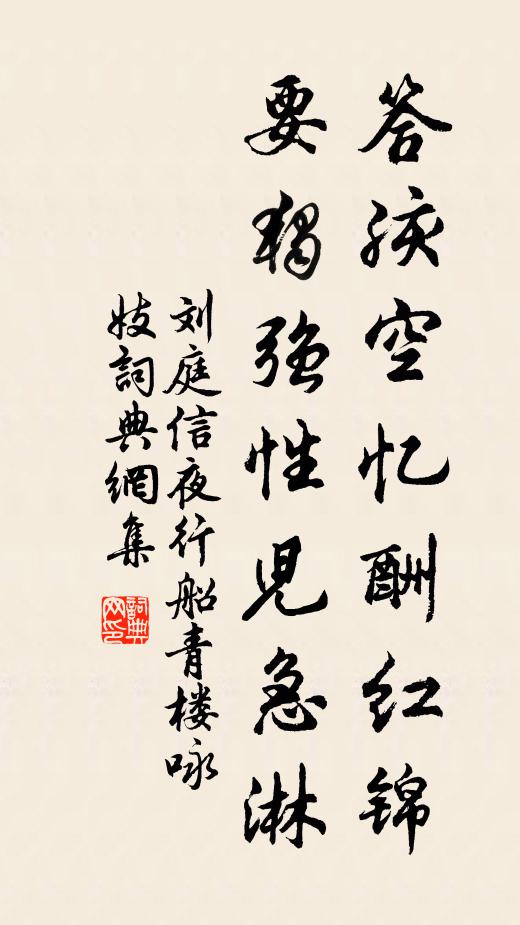 答孩空忆酬红锦
要猲强性児急淋
刘庭信夜行船青楼咏
妓詞典網集
詞典
网印